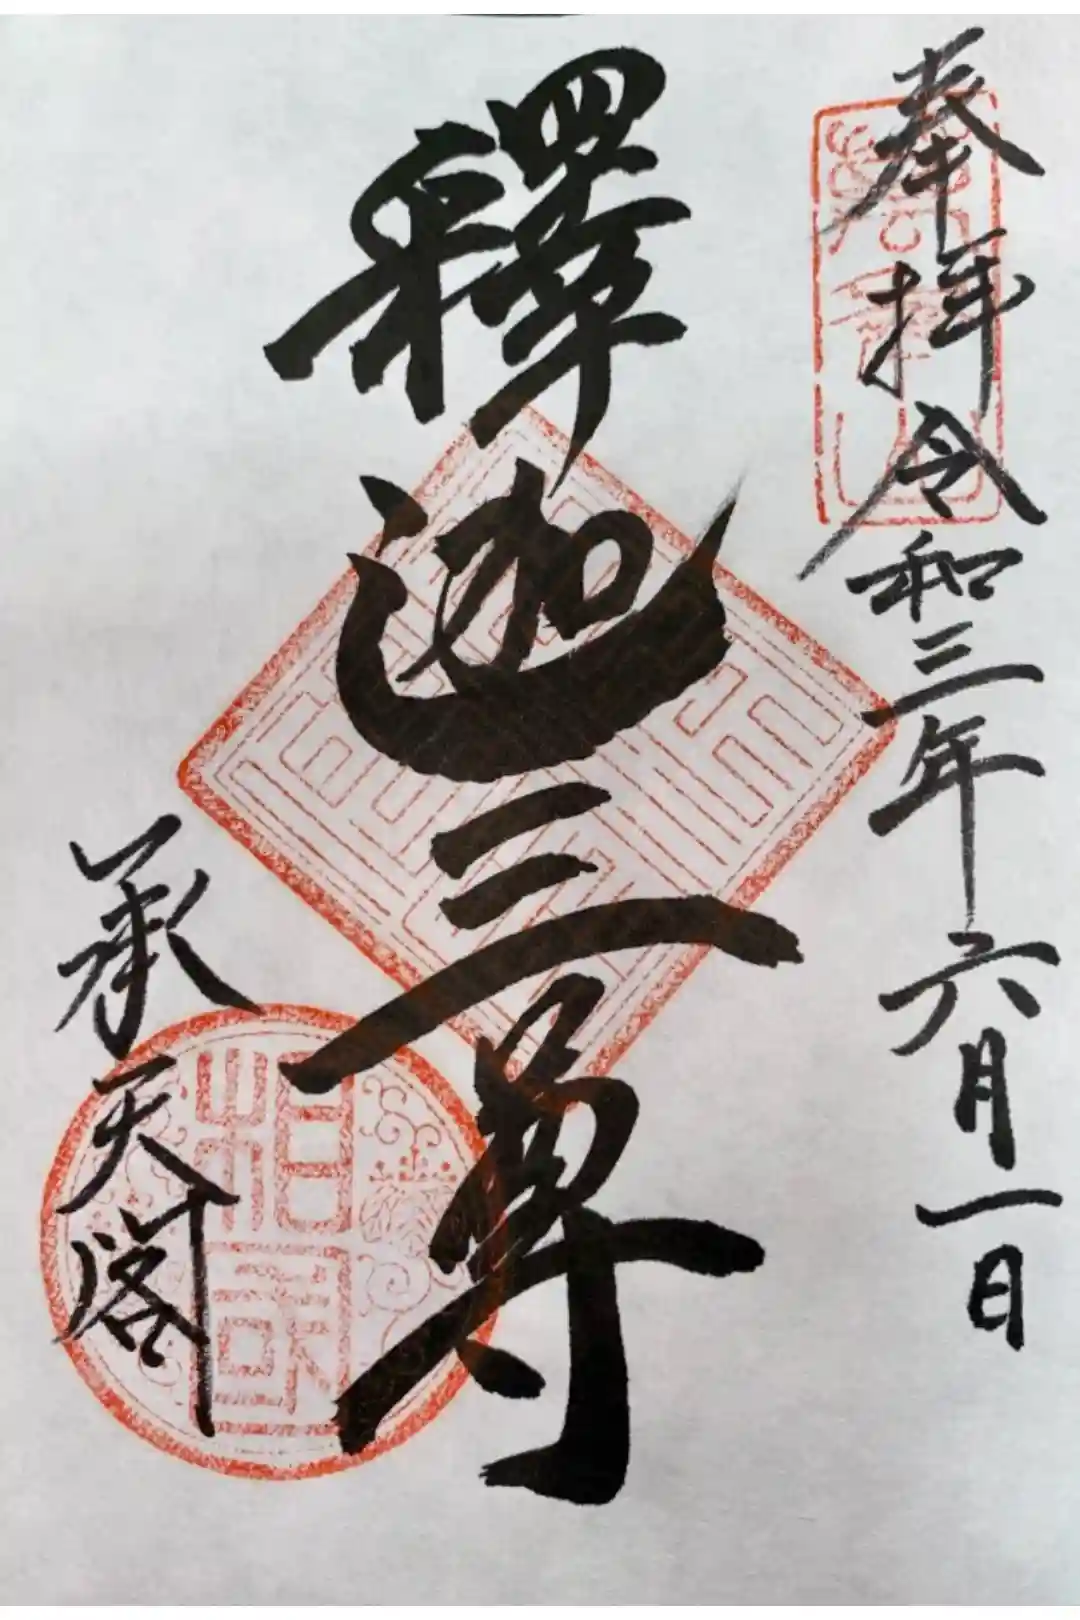 奉拝令和三年六月一日
釋迦三尊
承天閣
相国